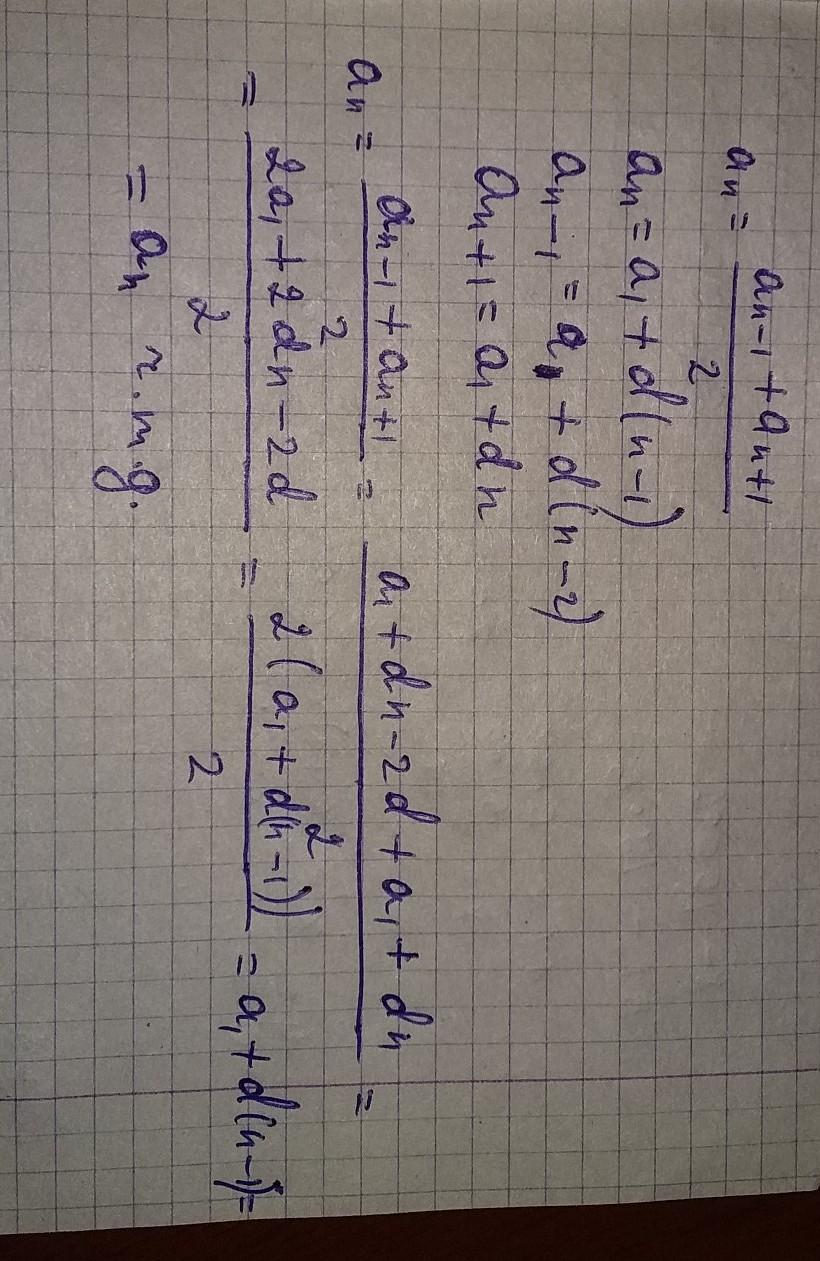 aₙ = (aₙ₋₁ + aₙ₊₁)/2
aₙ = a₁ + d(n-1)
aₙ₋₁ = a₁ + d(n-2)
aₙ₊₁ = a₁ + dn
aₙ = (aₙ₋₁ + aₙ₊₁)/2 = (a₁ + dn - 2d + a₁ + dn)/2 =
= (2a₁ + 2dn - 2d)/2 = 2(a₁ + d(n-1))/2 = a₁ + d(n-1) =
= aₙ г.т.д.